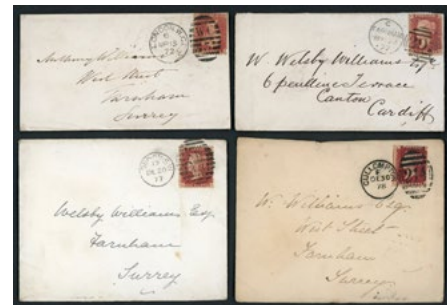 Anthony Williams
West Street
Farnham
Surrey
W. Welsby Williams Esq
6 pendine Terrace
Canton
Cardiff
Welsby Williams Esq.
Farnham
Surrey
CULLOMPTON
DE 30
78
W. Williams Esq.
West Street
Farnham
Surrey